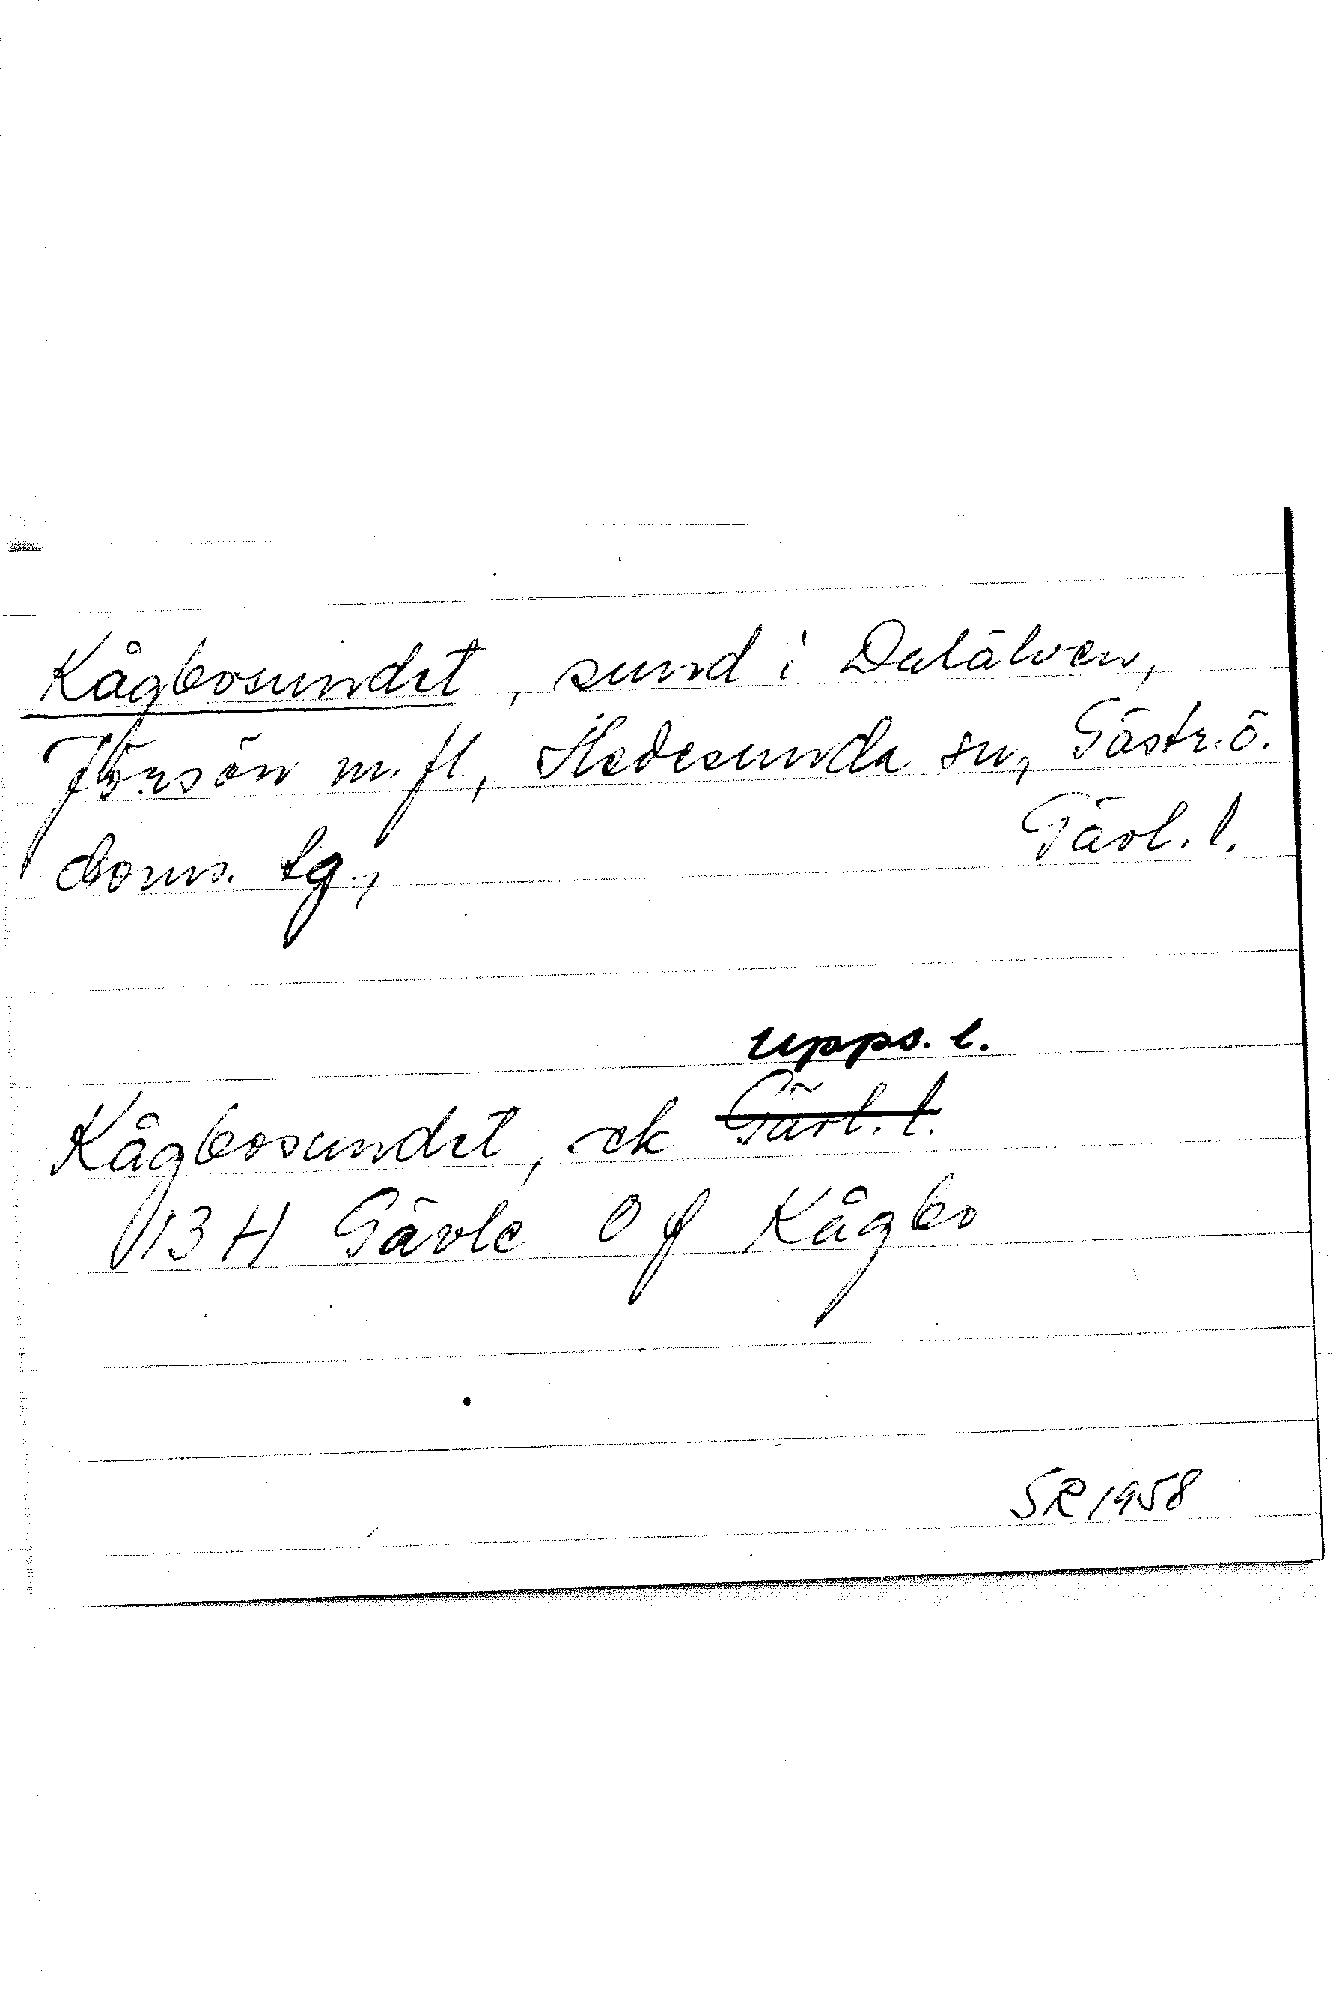 Kågbosundet, sund i Dalälven,
Jörsön m.fl, Hedesunda sn, Gästr. ö.
doms. tg., Gävl. l.
Upps. l.
Kågbosundet, ek Gävl. l.
13 H Gävle 0 f Kågbo
SR 1958